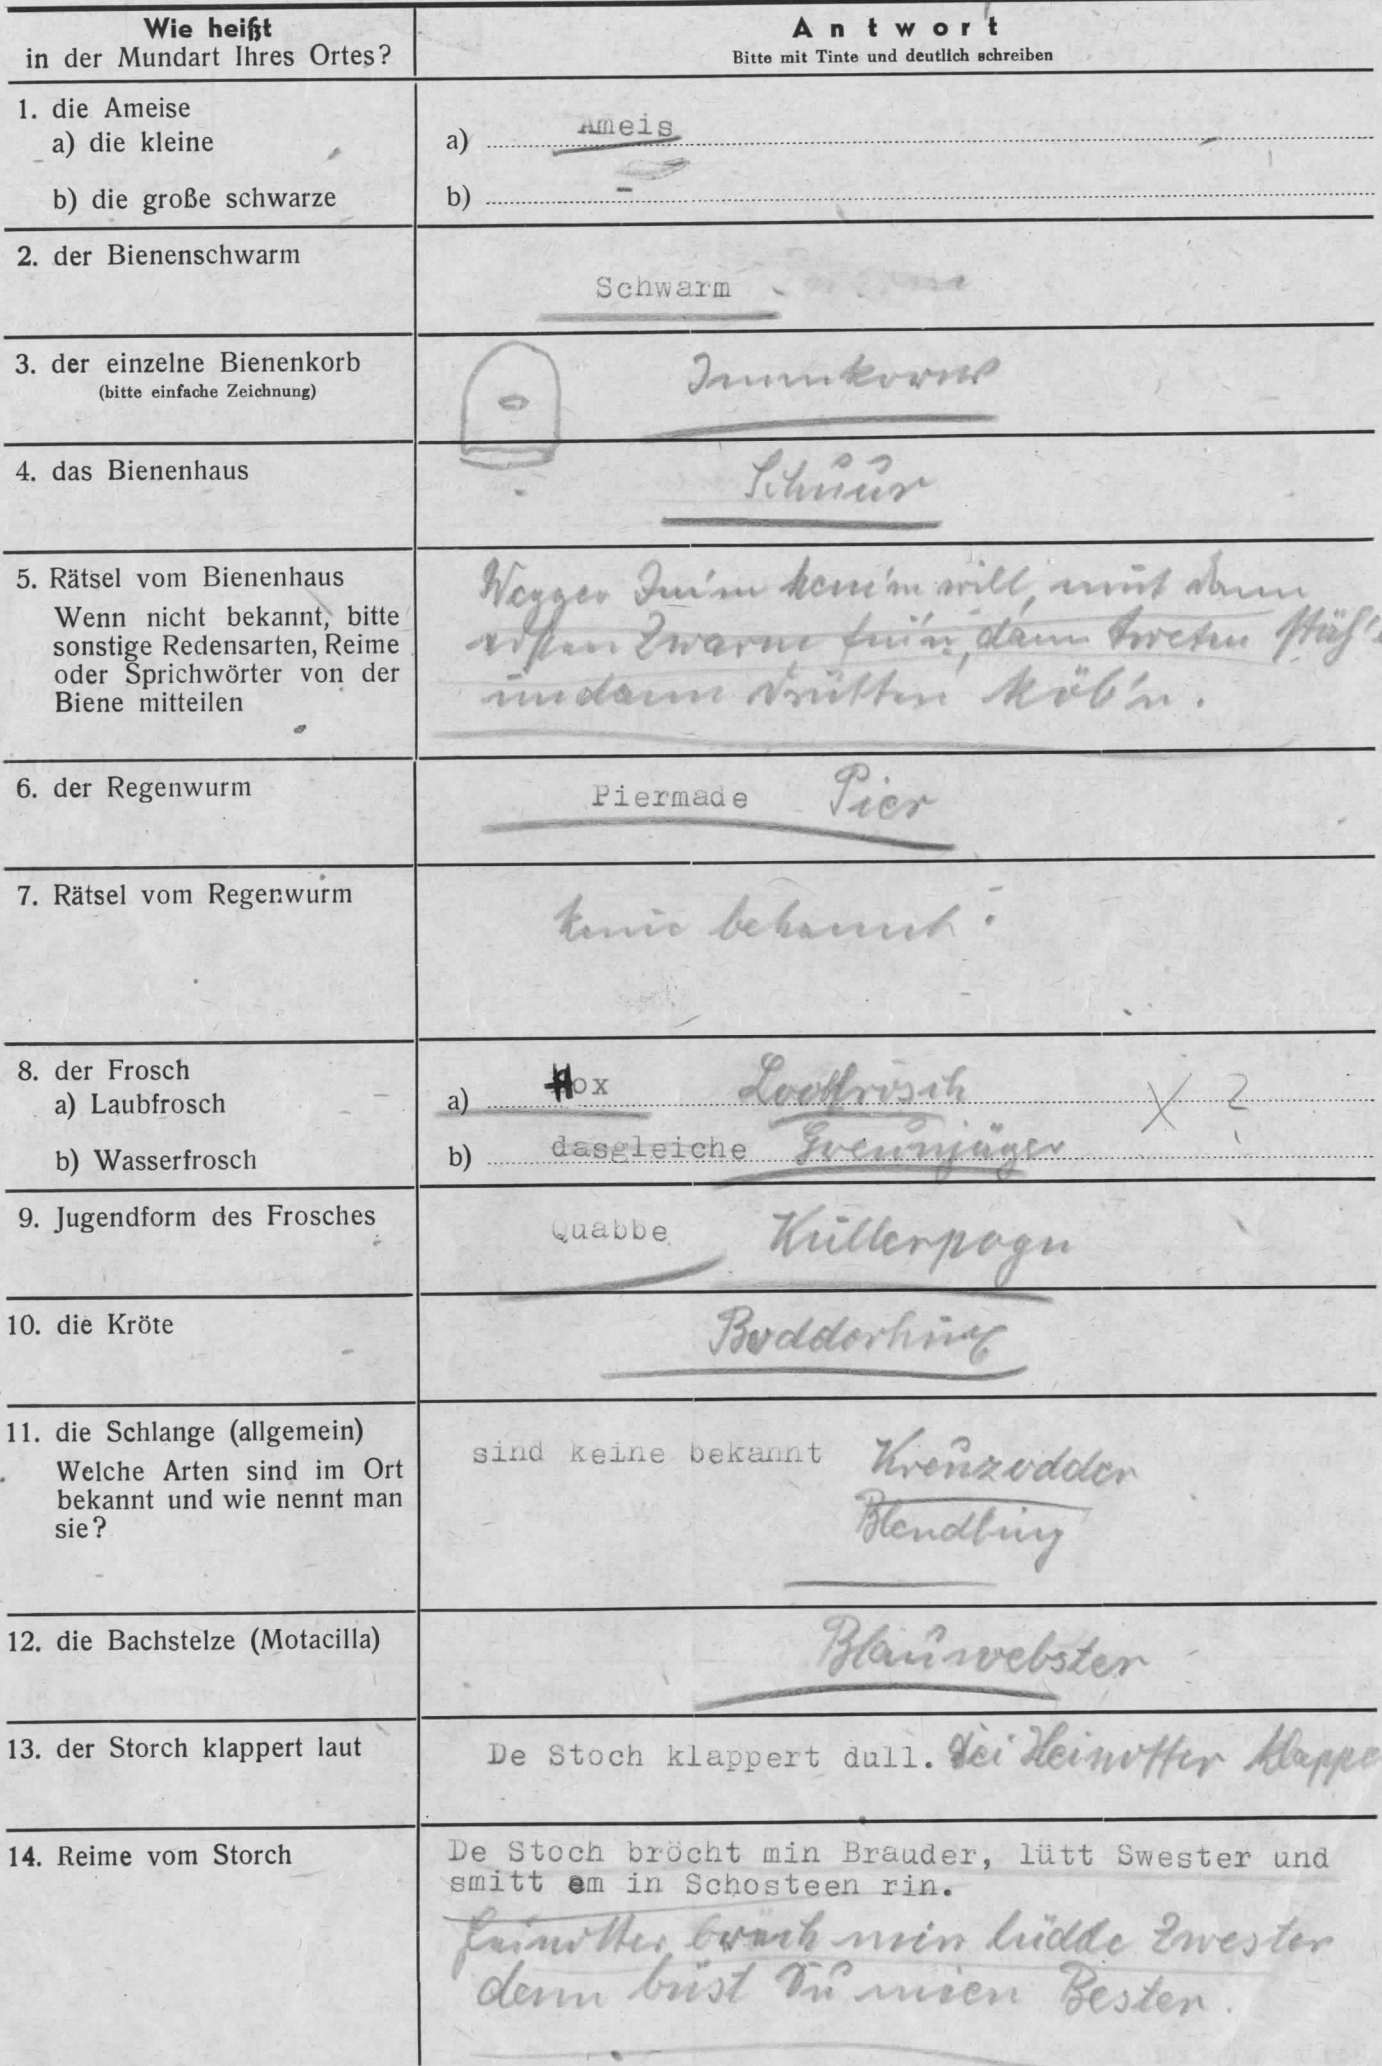 Wie heißt
in der Mundart Ihres Ortes?
Antwort
Bitte mit Tinte und deutlich schreiben
1. die Ameise
a) die kleine
a) Ameis
b) die große schwarze
b) -
2. der Bienenschwarm
Schwarm
3. der einzelne Bienenkorb
(bitte einfache Zeichnung)
4. das Bienenhaus
Schuur
5. Rätsel vom Bienenhaus
Wenn nicht bekannt, bitte
sonstige Redensarten, Reime
oder Sprichwörter von der
Biene mitteilen
will, mut dann
Zwarm dann tweten
un dann drütten köb'n.
6. der Regenwurm
Piermade Pier
7. Rätsel vom Regenwurm
bekannt.
8. der Frosch
a) Laubfrosch
a) Hox Looffrosch X ?
b) Wasserfrosch
b) dasgleiche Greunjäger
9. Jugendform des Frosches
Quabbe Küllerpogn
10. die Kröte
11. die Schlange (allgemein)
Welche Arten sind im Ort
bekannt und wie nennt man
sie?
sind keine bekannt Kreuzodder
Blendling
12. die Bachstelze (Motacilla)
Blauwebster
13. der Storch klappert laut
De Stoch klappert dull. Dei Heinotter klappe
14. Reime vom Storch
De Stoch bröcht min Brauder, lütt Swester und
smitt em in Schosteen rin.
min lüdde Zwester
denn büst Du mien Bester.